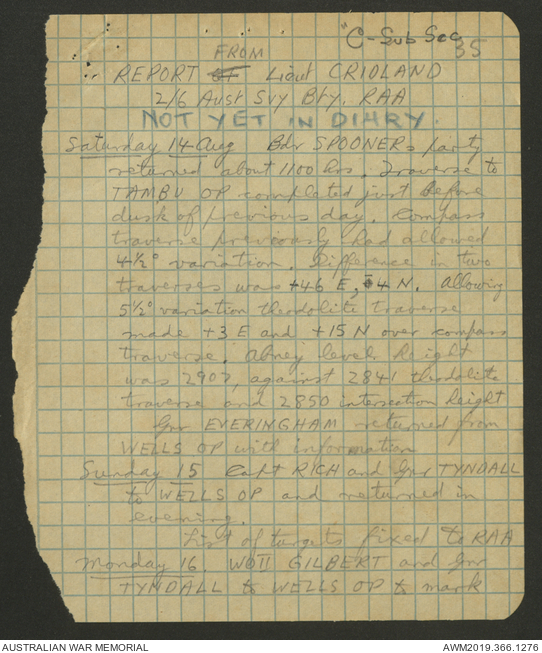 "C-Sub Sec
35
FROM
REPORT of Lieut CRIDLAND
2/6 Aust Svy Bty. RAA
NOT YET IN DIHRY.
Saturday 14 Aug Bdr SPOONERs party
returned about 1100 hrs. Traverse to
TAMBU OP completed just before
dusk of previous day. Compass
traverse previously had allowed
4½° variation. Difference in two
traverses was +46 E, 4 N. Allowing
5½° variation theodolite traverse
made +3 E and +15 N over compass
traverse. Abney level height
was 2907, against 2841 theodolite
traverse and 2850 intersection height
Gnr EVERINGHAM returned from
WELLS OP with information
Sunday 15 Capt RICH and Gnr TYNDALL
to WELLS OP and returned in
evening.
List of targets fixed to RAA
Monday 16. WOII GILBERT and Gnr
TYNDALL to WELLS OP to mark
AUSTRALIAN WAR MEMORIAL
AWM2019.366.1276